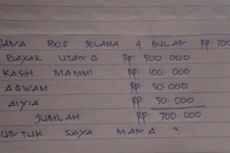 DANA BOS SELAMA 4 BULAN RP. 700
BAYAR UTANG RP. 500.000
KASIH MAMMI RP. 100.000
AQWAM RP. 50.000
AIYIA RP. 50.000
JUMLAH RP. 700.000
UNTUK SAYA MANA ?